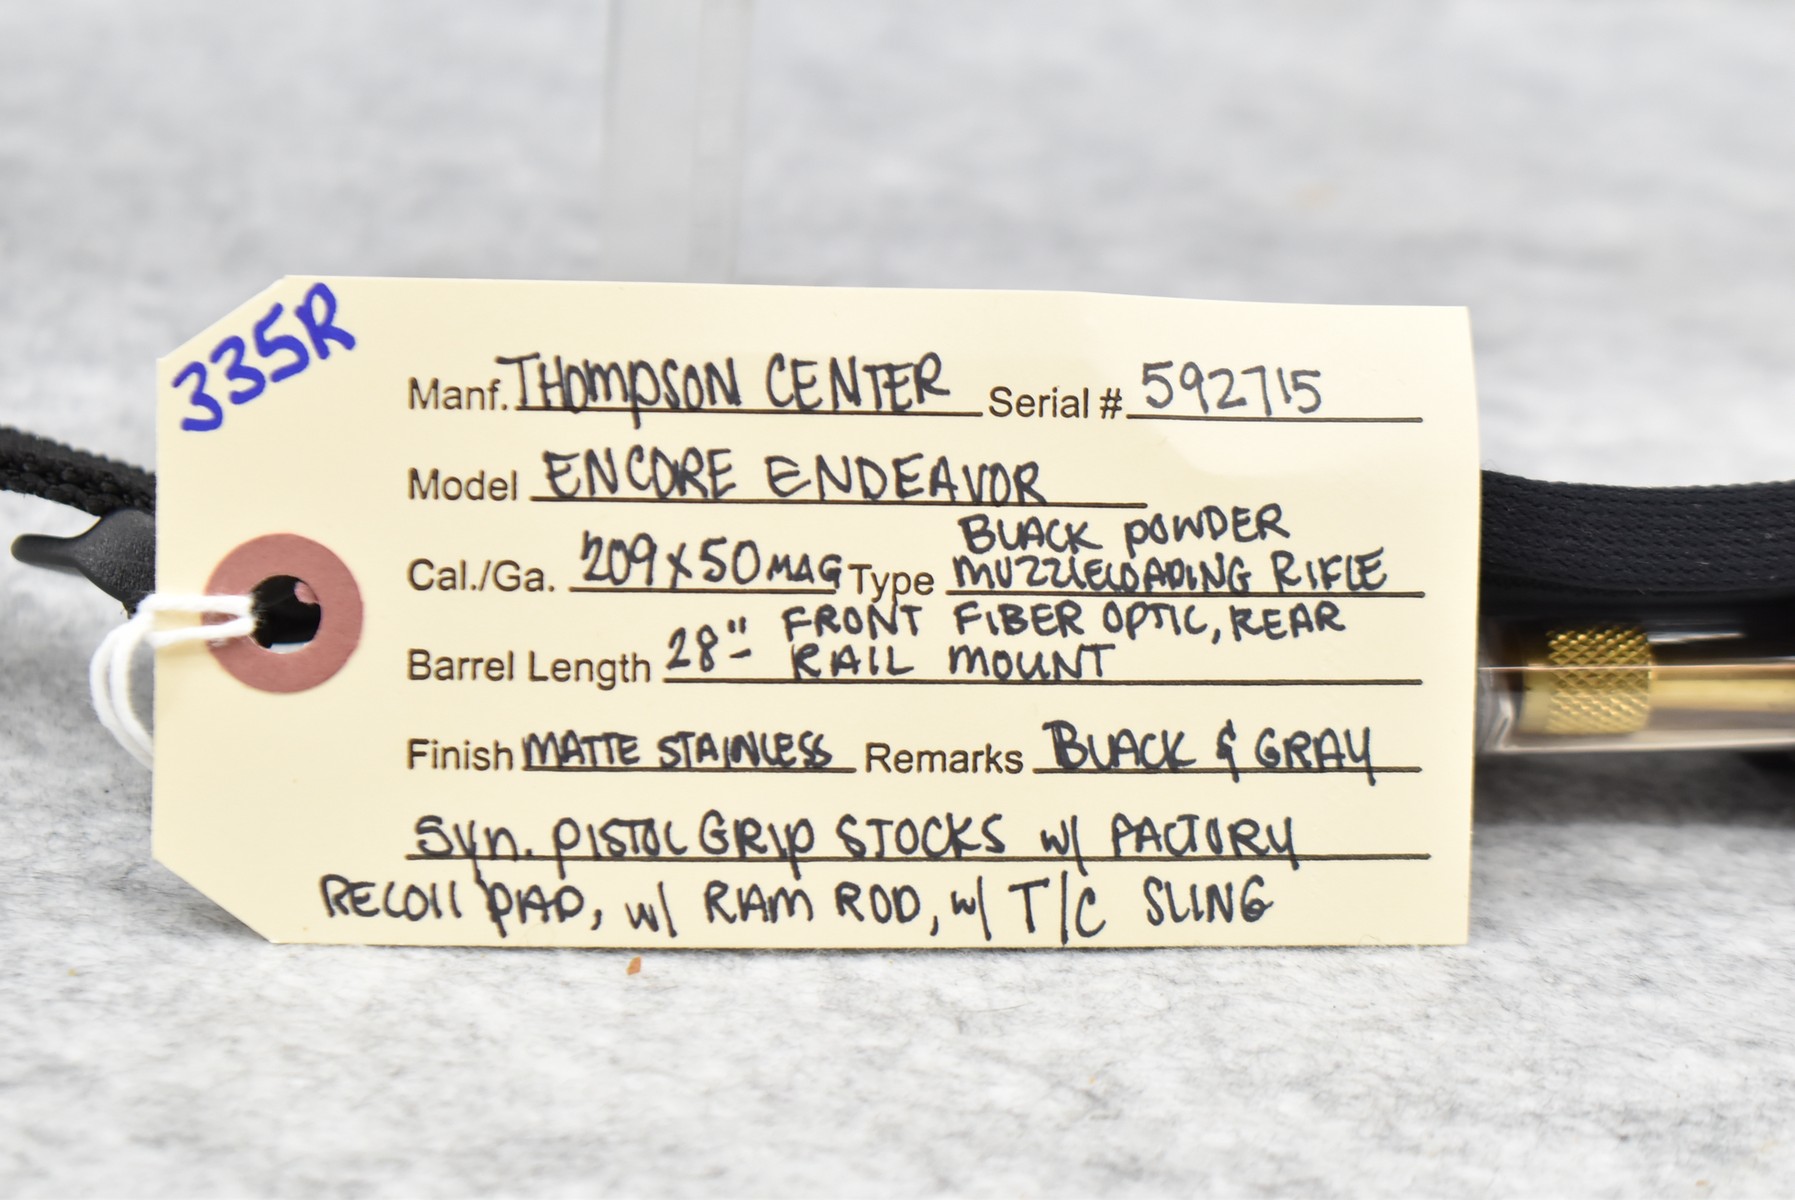 335R
Manf. THOMPSON CENTER Serial # 592715
Model ENCORE ENDEAVOR
BLACK POWDER
Cal./Ga. 209x50 MAG Type MUZZLELOADING RIFLE
FRONT FIBER OPTIC, REAR
Barrel Length 28" - RAIL MOUNT
Finish MATTE STAINLESS Remarks BLACK & GRAY
SYN. PISTOL GRIP STOCKS W/ FACTORY
RECOIL PAD, W/ RAM ROD, W/ T/C SLING